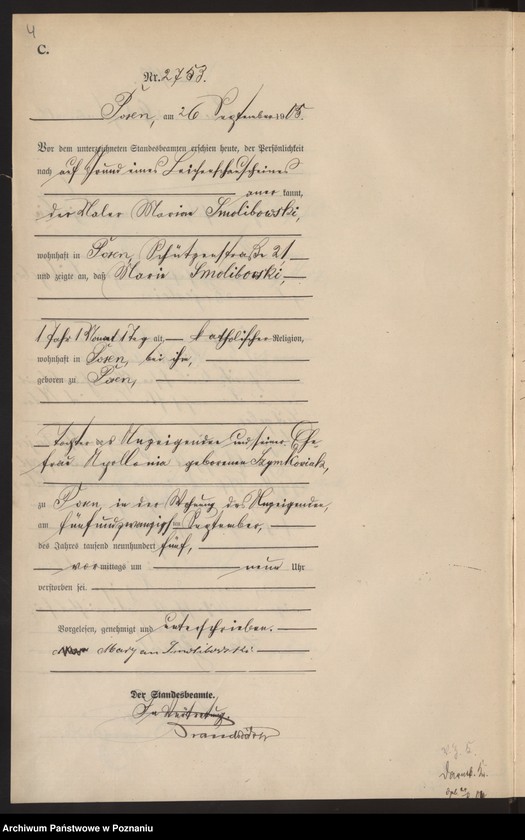 4
C.
Nr. 2753.
Posen, am 26 September 1905.
Vor dem unterzeichneten Standesbeamten erschien heute, der Persönlichkeit
nach auf Grund eines Leichenschauscheines
anerkannt,
der Maler Marian Smolibowski,
wohnhaft in Posen, Schützenstraße 21
und zeigte an, daß Marie Smolibowski,
1 Jahr 1 Monat 1 Tag alt, katholischer Religion,
wohnhaft in Posen, bei ihm,
geboren zu Posen,
Tochter des Anzeigenden und seiner Ehe-
frau Apollonia geborenen Szymkowiak,
zu Posen, in der Wohnung des Anzeigenden,
am fünfundzwanzigsten September,
des Jahres tausend neunhundert fünf,
vormittags um neun Uhr
verstorben sei.
Vorgelesen, genehmigt und unterschrieben.
Maryan Smolibowski
Der Standesbeamte.
In Vertretung.
Archiwum Państwowe w Poznaniu